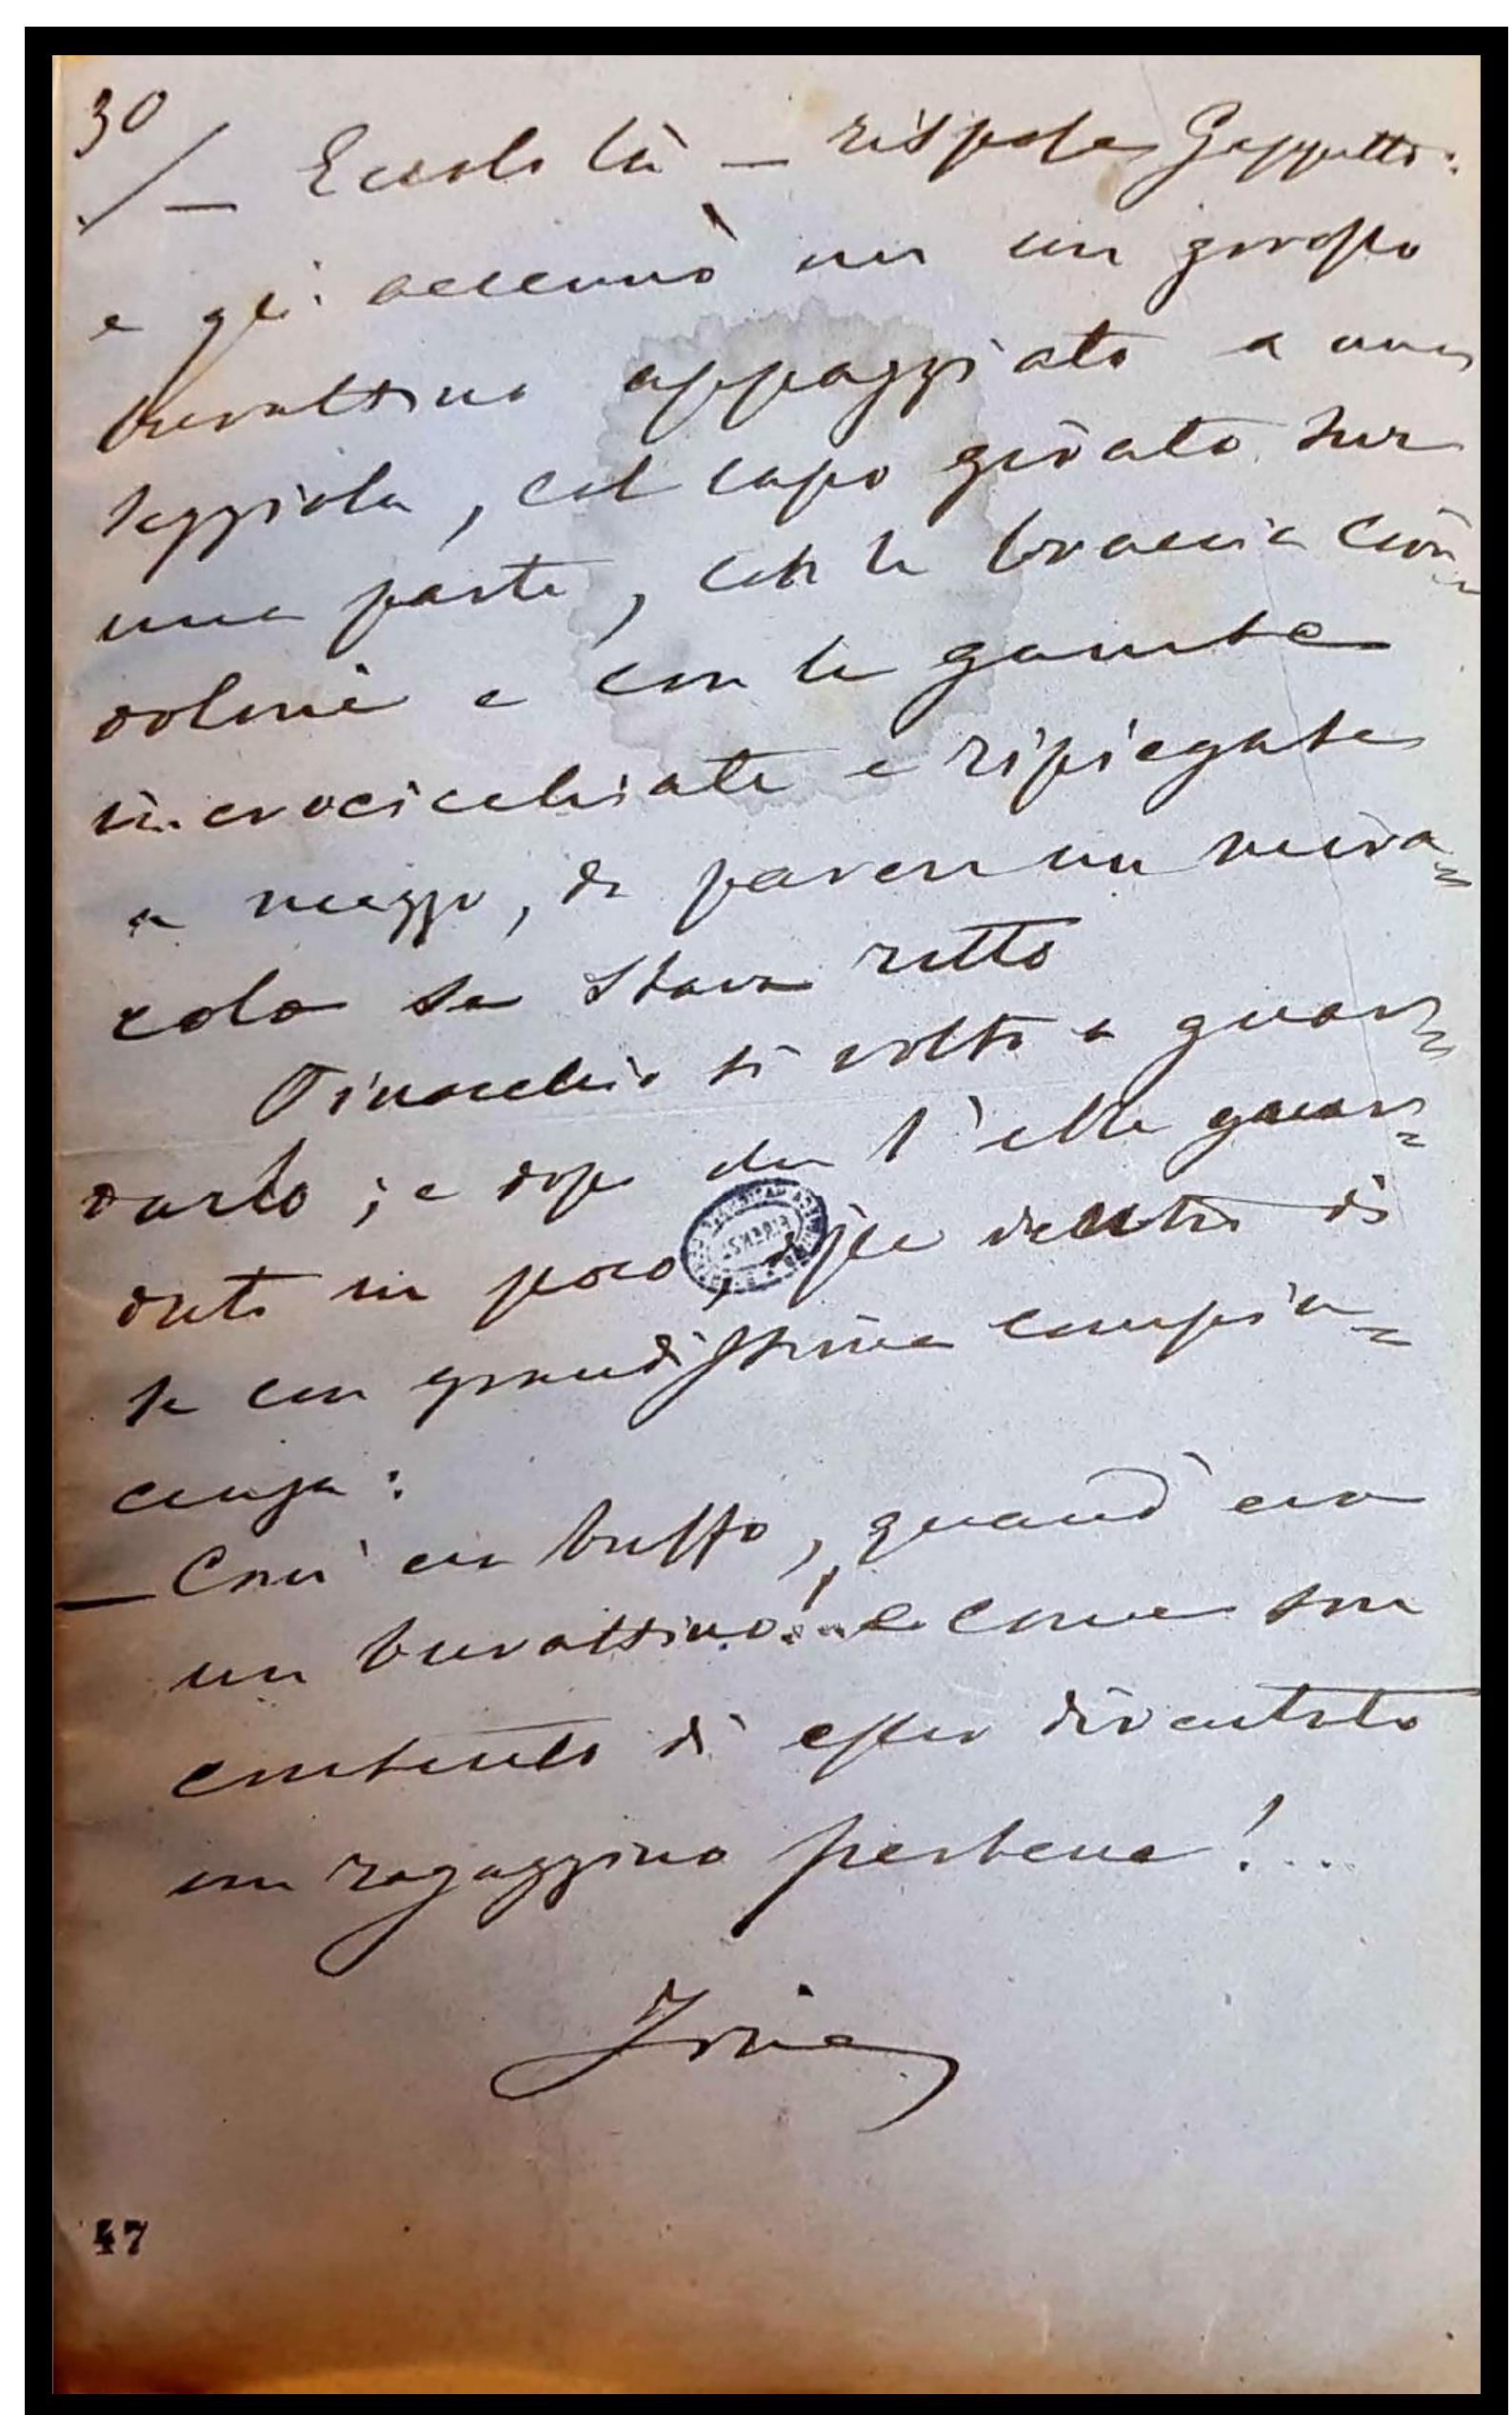 30
— Eccolo là — rispose Geppetto:
e gli accennò un un grosso
burattino appoggiato a una
seggiola, col capo girato sur
una parte, con le braccia cion=
doloni e con le gambe
incrocicchiate e ripiegate
a mezzo, da parere un mira=
colo se stava ritto
Pinocchio si voltò a guar=
darlo; e dopo che l'ebbe guar=
dato un poco, disse dentro di
se con grandissima compia=
cenza:
— Com'era buffo, quand'ero
un burattino! e come son
contento di esser diventato
un ragazzino perbene!...
Fine
47